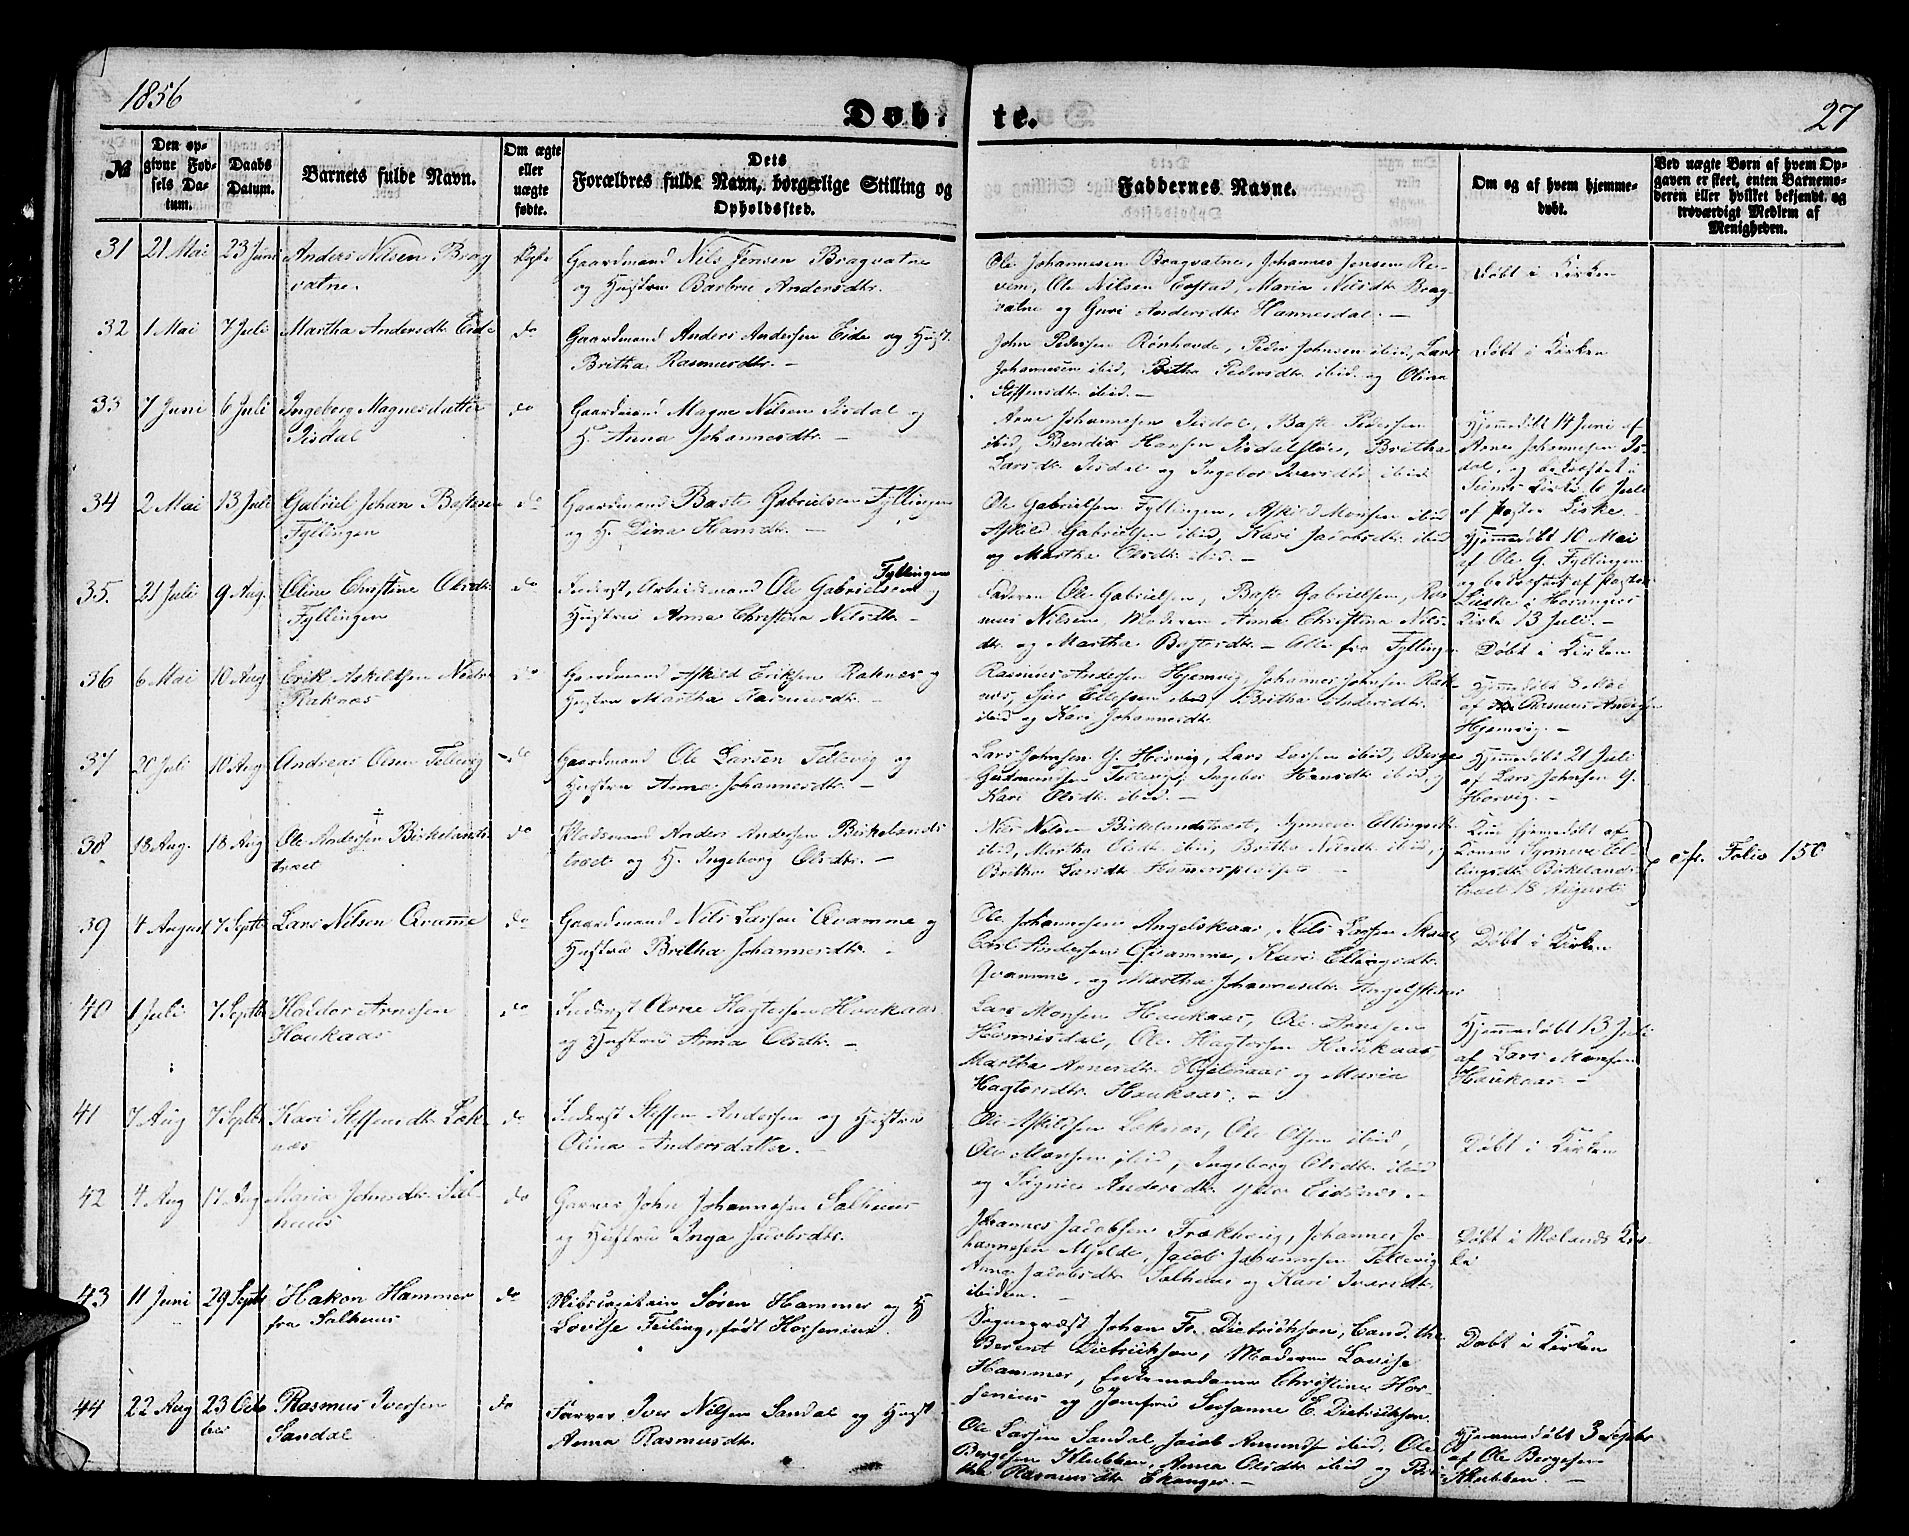 1856
Døbte.
27
№
Den opgivne Fødsels Datum.
Daabs Datum.
Barnets fulde Navn.
Om ægte eller uægte fødte.
Dets Forældres fulde Navn, borgerlige Stilling og Opholdssted.
Faddernes Navne.
Om og af hvem hjemmedøbt.
Ved uægte Børn af hvem Opgaven er skeet, enten Barnemoderen eller hvilket bekjendt og troværdigt Medlem af Menigheden.
31 21 Mai 23 Juni Anders Nilsen Bragvatne. Ægte
Gaardmand Nils Jensen Bragvatne
og Hustru Barbru Andersdtr.
Ole Johannesen Bragvatne, Johannes Jensen
Ole Nilsen Maria Nilsdtr. Bragvatne
og Guri Andersdtr. Hannisdal. –
Døbt i Kirken
32 1 Mai 7 Juli Martha Andersdtr. Eide do
Gaardmand Anders Andersen Eide og Hust.
Britha Rasmusdtr. –
John Pedersen Rønhovde, Peder Johnsen ibid, Lars
Johannesen ibid, Britha Pedersdtr. ibid og Olina
Steffensdtr. ibid. –
Døbt i Kirken
33 7 Juni 6 Juli Ingeborg Magnesdatter Isdal do
Gaardmand Magne Nilsen Isdal og
H. Anna Johannesdtr. –
Arne Johannesen Isdal, Baste Pedersen
ibid, Bendix Hansen Isdalstøe, Britha
Larsdtr. Isdal og Ingebor Iversdtr. ibid
Hjemmedøbt 14 Juni af
Arne Johannesen Isdal,
og bekræftet i
Seims Kirke 6 Juli
af Pastor Lieske. –
34 2 Mai 13 Juli Gabriel Johan Bastesen Fyllingen do
Gaardmand Baste Gabrielsen Fyllingen
og H. Dina Hansdtr. –
Ole Gabrielsen Fyllingen, Askild Monsen ibid
Askild Gabrielsen ibid, Kari Jacobsdtr. ibid
og Martha Olsdtr. ibid. –
Hjemmedøbt 10 Mai
af Ole G. Fyllingen
og bekræftet af Pastor
Lieske i Hosangers
Kirke 13 Juli. –
35. 21 Juli 9 Aug. Oline Christine Olsdtr. Fyllingen do
Inderst, Arbeidsmand Ole Gabrielsen Fyllingen og
Hustru Anna Christina Nilsdtr. –
Faderen Ole Gabrielsen, Baste Gabrielsen, Rasmus
Nilsen, Moderen Anna Christina Nilsdtr.
og Martha Bastesdtr. – Alle fra Fyllingen
Døbt i Kirken
36 6 Mai 10 Aug Erik Askildsen Nedre Raknæs do
Gaardmand Askild Eriksen Raknæs og
Hustru Martha Rasmusdtr. –
Rasmus Andersen Hjemvig, Johannes Johnsen Raknæs,
Sjur Ellefsen ibid, Britha Andersdtr.
ibid og Kari Johannesdtr.
Hjemmedøbt 8 Mai
af Rasmus Andersen
Hjemvig. –
37 20 Juli 10 Aug Andreas Olsen Tellevig do
Gaardmand Ole Larsen Tellevig og
Hustru Anna Johannesdtr. –
Lars Johnsen Y. Horvig, Lars Larsen ibid, Berge
Gudmundsen Tellevig, Ingebor Hansdtr. ibid, og
Kari Olsdtr. ibid. –
Hjemmedøbt 21 Juli
af Lars Johnsen Y.
Horvig. –
38 18 Aug. 18 Aug Ole Andersen Birkelandstræet ‡ do
Pladsmand Anders Andersen Birkelandstræet
og H. Ingeborg Olsdtr. –
Nils Nilsen Birkelandstræet, Synneve Ellingsdtr.
ibid, Martha Olsdtr. ibid, Britha Nilsdtr. ibid, og
Britha Larsdtr.
Kun hjemmedøbt af
Konen Synneve Ellingsdtr.
Birkelandstræet
18 Augusti
cfr. Folio 150
39 4 August 7 Septbr Lars Nilsen Qvamme do
Gaardmand Nils Larsen Qvamme og
Hustru Britha Johannesdtr. –
Ole Johannesen Angelskaar, Nils Larsen
Carl Andersen Qvamme, Kari Ellingsdtr.
Qvamme, og Martha Johannesdtr. Angelskaar
Døbt i Kirken
40 1 Juli 7 Septbr Haldor Arnesen Haukaas do
Inderst Arne Hagtorsen Haukaas
og Hustru Anna Olsdtr. –
Lars Monsen Haukaas, Ole Arnesen
Hannisdal, Ole Hagtorsen Haukaas
Martha Arnesdtr. og Maria
Hagtorsdtr. Haukaas. –
Hjemmedøbt 13 Juli
af Lars Monsen
Haukaas. –
41 7 Aug 7 Septbr Kari Steffensdtr. Leknæs do
Inderst Steffen Andersen og Hustru
Olina Andersdatter. –
Ole Askildsen Leknæs, Ole Olsen ibid,
Ole Monsen ibid, Ingeborg Olsdtr. ibid
og Andersdtr. Eidsnæs. –
Døbt i Kirken
42 4 Aug 17 Aug Maria Johnsdtr. Salhuus do
Garver John Johannesen Salhuus
og Hustru Inga Jacobsdtr.
Johannes Jacobsen Trækhvig, Johannes Johannesen
Mjelde, Jacob Johannesen Tellevig
Anna Jacobsdtr. Salhuus og Kari Iversdtr.
ibidem. –
Døbt i Mælands Kirke
43 11 Juni 29 Septbr Hakon Hammer fra Salhuus do
Skibscapitain Søren Hammer og H
Lovise Feiling, født Horsenius.
Sogneprest Johan Fr. Dietrichson, Cand. the.
Berent Dietrichson, Moderen Lovise
Hammer, Enkemadame Christine Horsenius
og Jomfru Susanne E. Dietrichson.
Døbt i Kirken
44 22 Aug 23 October Rasmus Iversen Sandal do
Farver Iver Nilsen Sandal og Hust
Anna Rasmusdtr.
Ole Larsen Sandal, Jacob Amunds. ibid, Ole
Bergesen Klubben, Anna Olsdtr. ibid og Britha
Rasmusdtr. Ekanger. –
Hjemmedøbt 3 Septbr
af Ole Bergesen
Klubben –